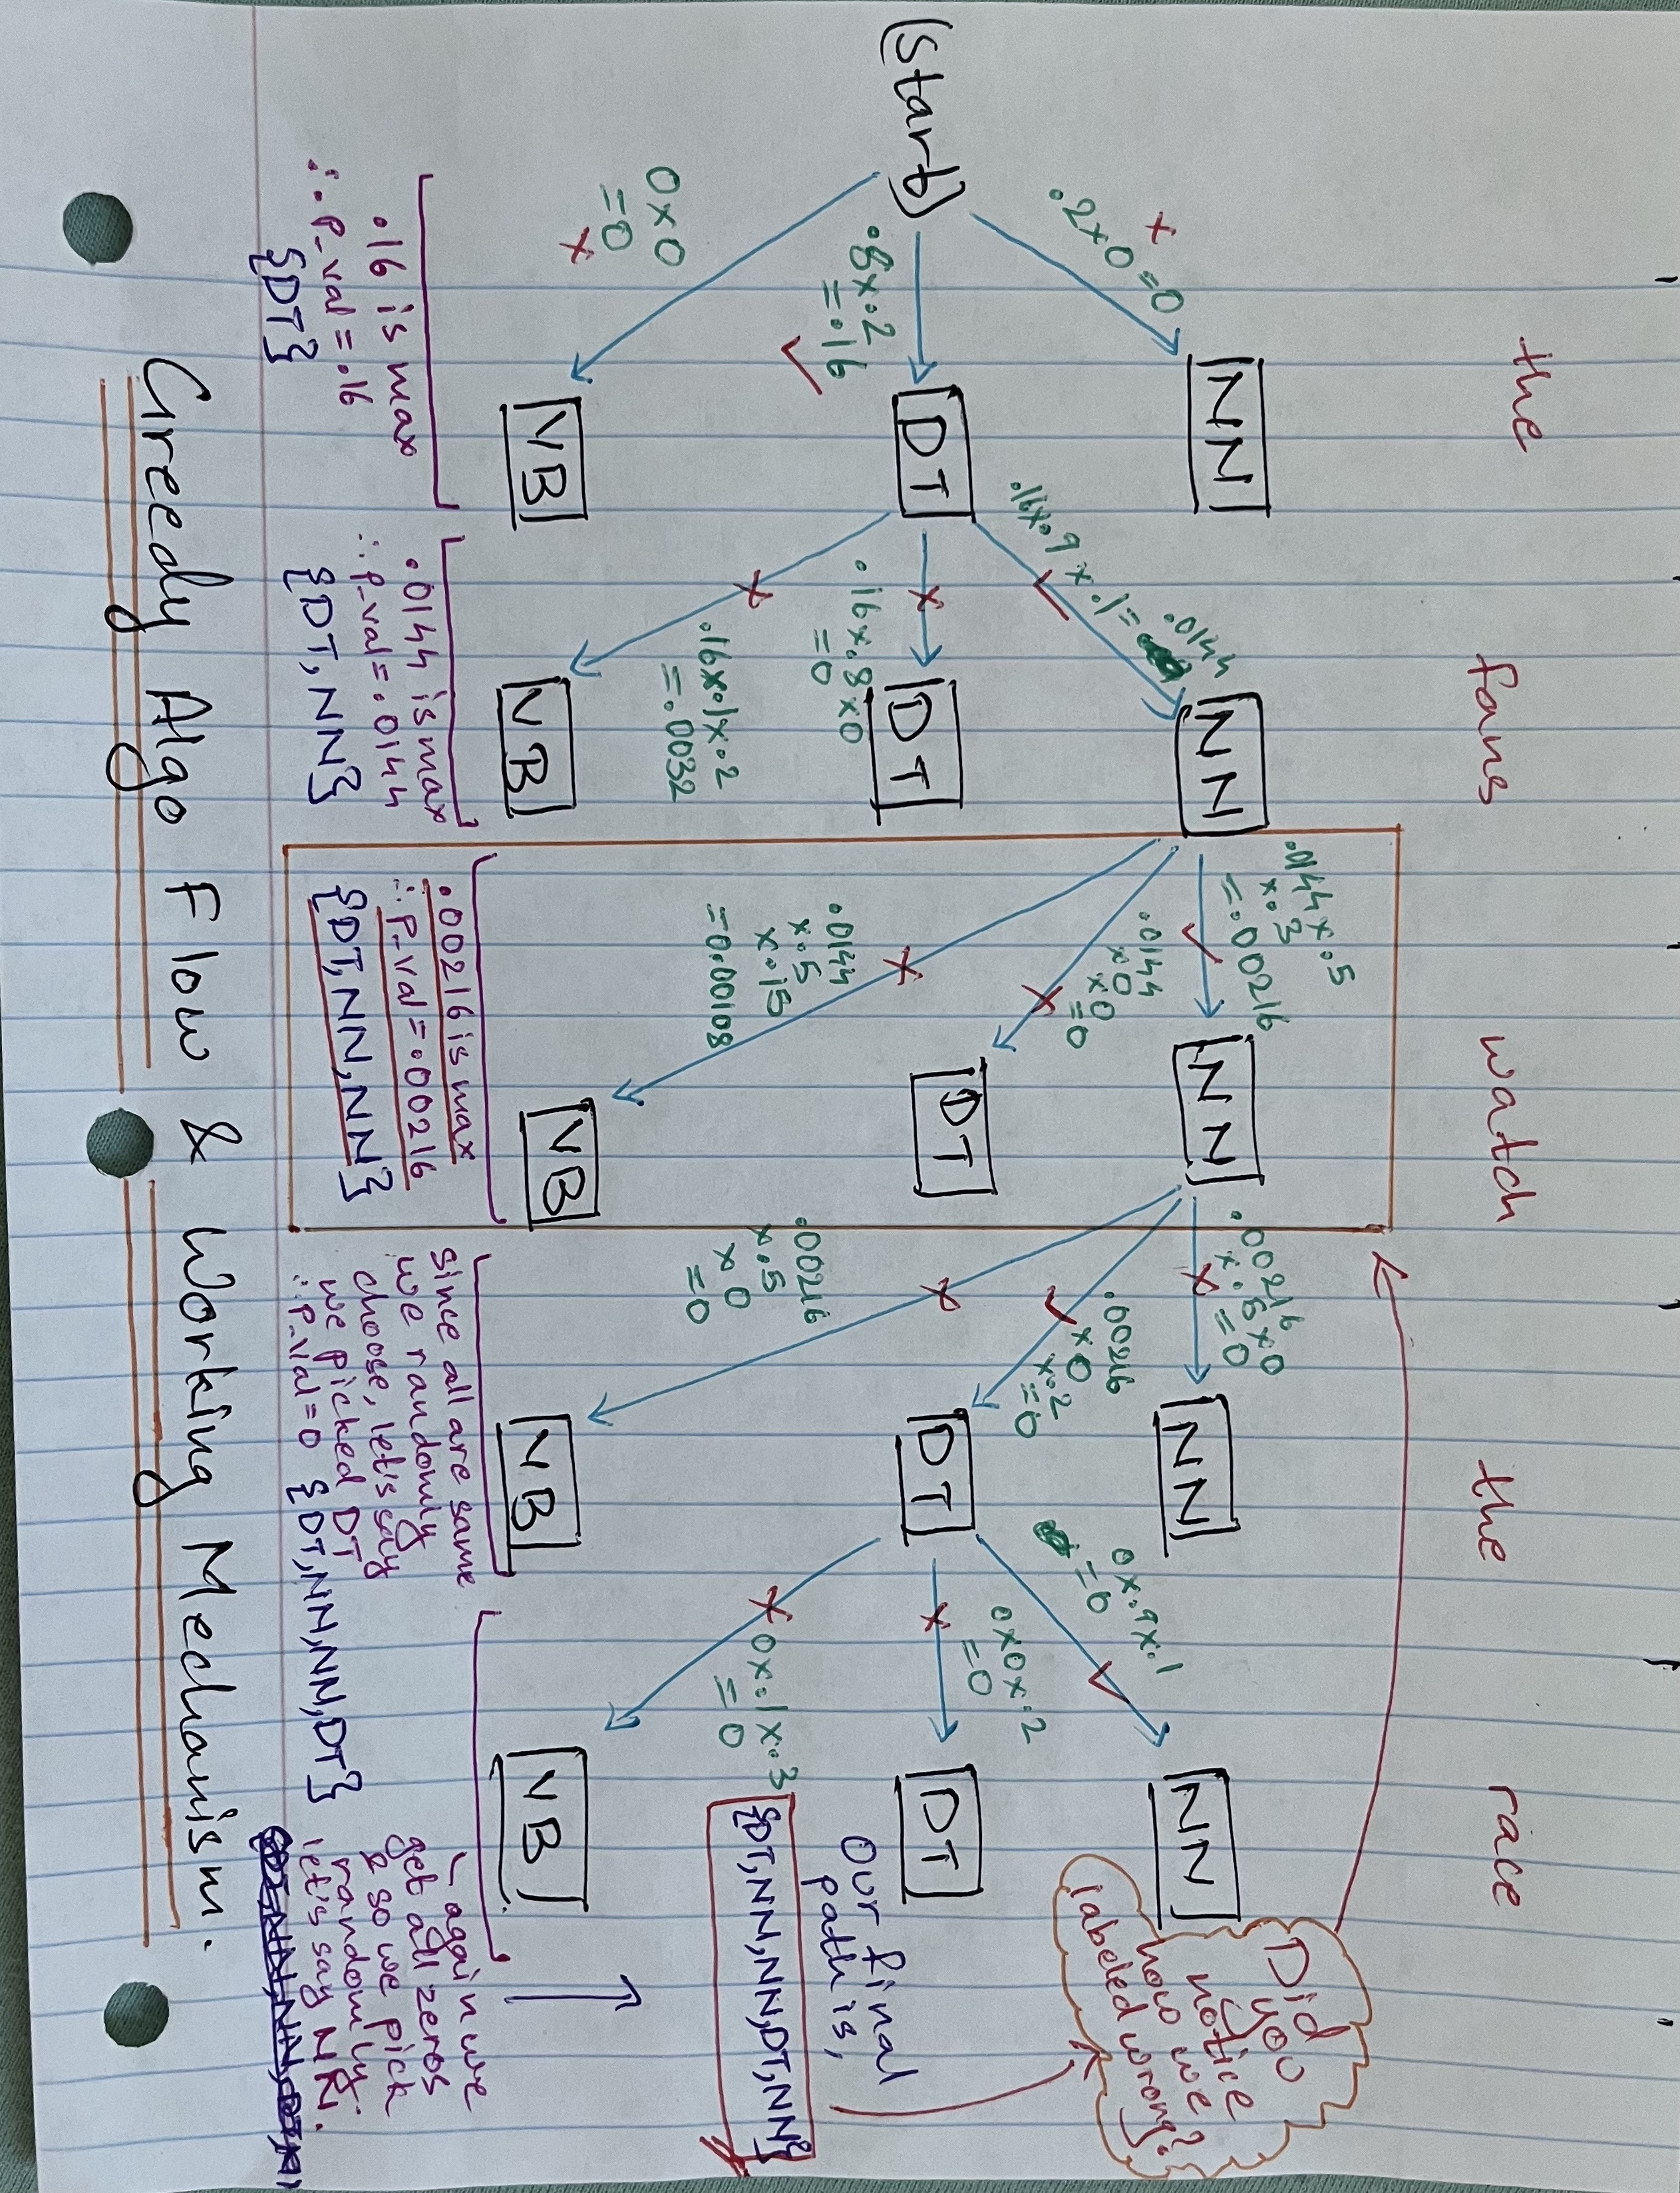 the fans watch the race
(Start)
x
.2x0=0
.8x.2
=.16
✓
0x0
=0
x
NN
DT
VB
.16 is max
∴ P_val = .16
{DT}
.16x.9x.1=
.0144
✓
x
.16x.8x0
=0
x
.16x.1x.2
=.0032
NN
DT
VB
.0144 is max
∴ P_val = .0144
{DT, NN}
.0144x.5
x.3
=.00216
✓
.0144
x0
x0
=0
x
.0144
x.5
x.15
=0.00108
x
NN
DT
VB
.00216 is max
∴ P_val = .00216
{DT,NN,NN}
.00216
x.5x0
=0
x
.00216
x0
x.2
=0
✓
.00216
x.5
x0
=0
x
NN
DT
VB
since all are same
we randomly
choose, let's say
we picked DT
∴ P_val=0 {DT,NN,NN,DT}
0x.9x.1
=0
✓
0x0x.2
=0
x
0x.1x.3
=0
x
NN
DT
VB
again we
get all zeros
& so we pick
randomly.
let's say NN.
Our final
path is,
{DT,NN,NN,DT,NN}
Did
you
notice
how we
labeled wrong?
Greedy Algo Flow & Working Mechanism.